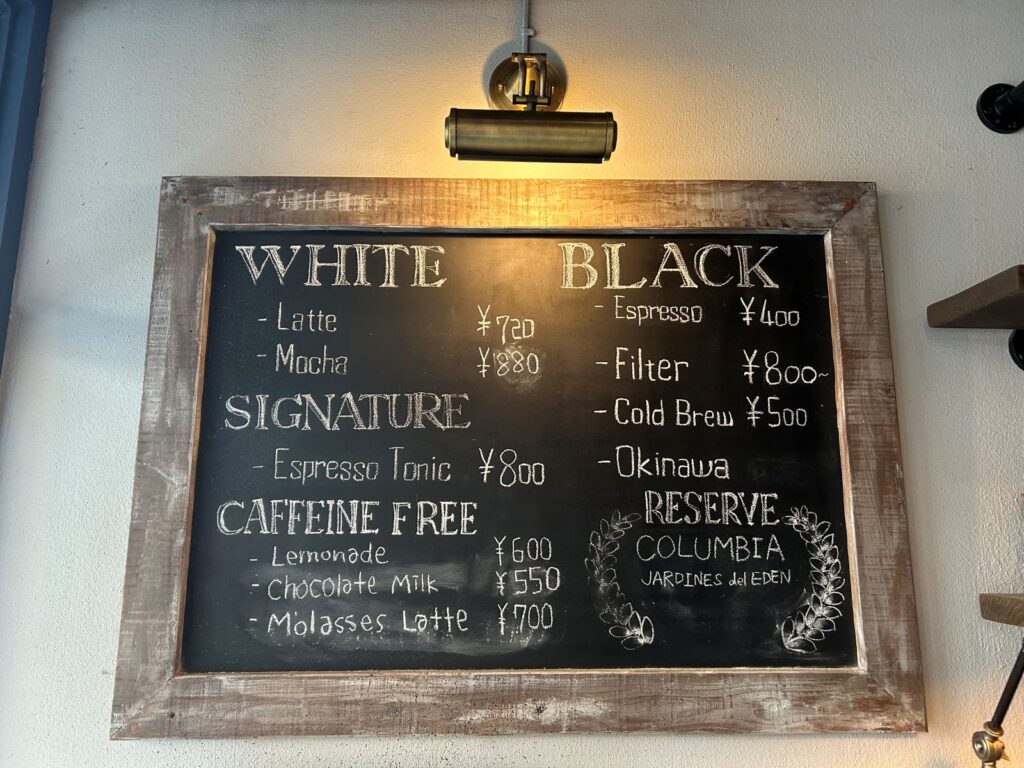 WHITE
- Latte ¥720
- Mocha ¥880
SIGNATURE
- Espresso Tonic ¥800
CAFFEINE FREE
- Lemonade ¥600
- Chocolate Milk ¥550
- Molasses Latte ¥700
BLACK
- Espresso ¥400
- Filter ¥800~
- Cold Brew ¥500
- Okinawa
RESERVE
COLUMBIA
JARDINES del EDEN